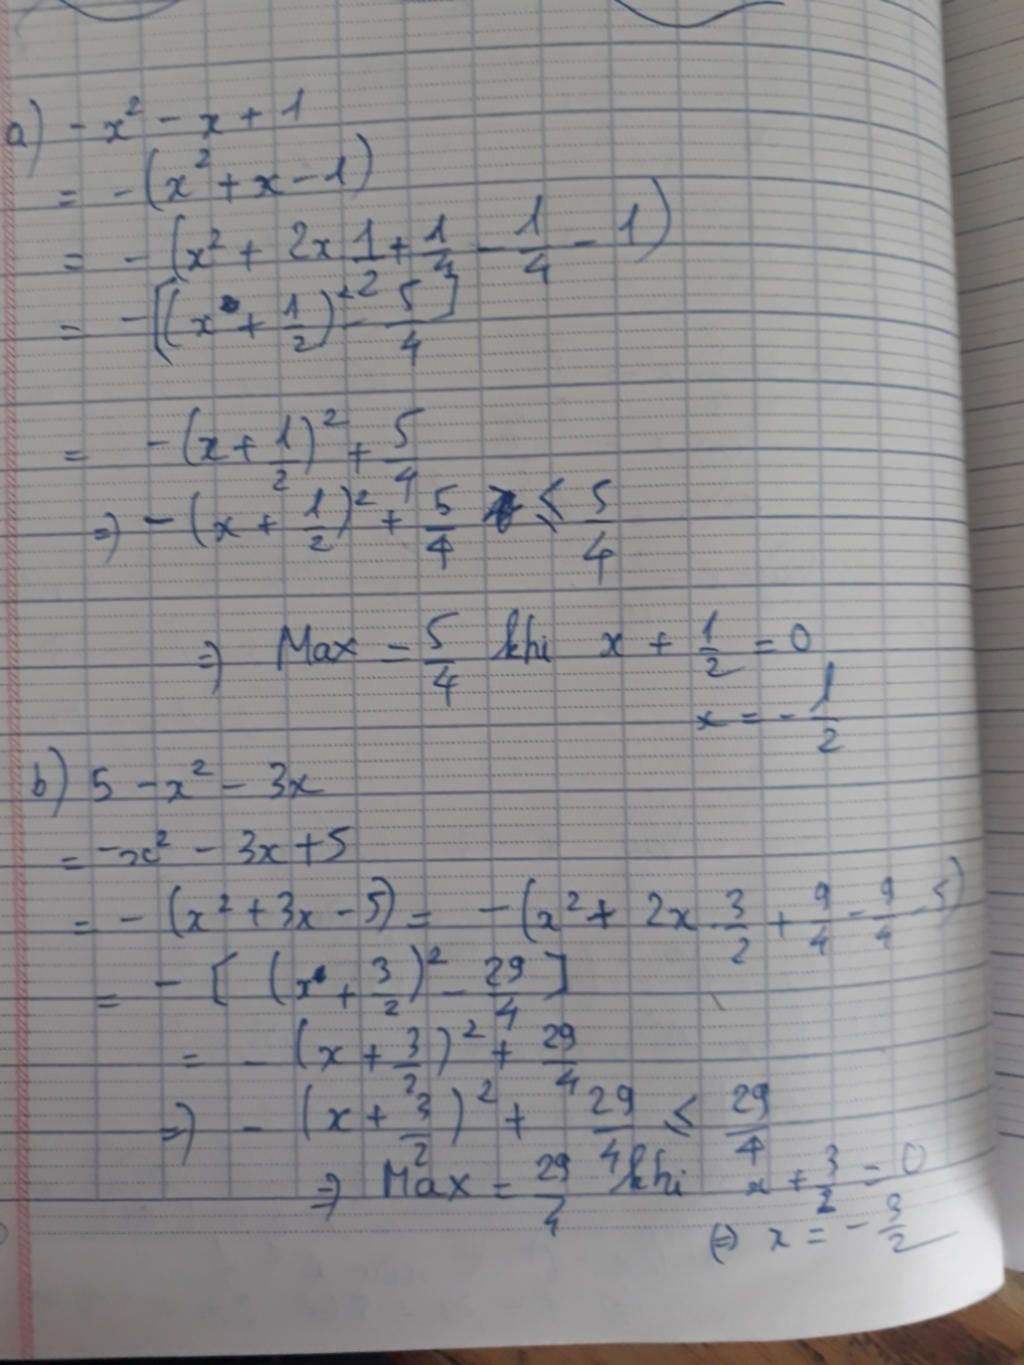 a) - x² - x + 1
= - (x² + x - 1)
= - (x² + 2x 1/2 + 1/4 - 1/4 - 1)
= - [(x + 1/2)² - 5/4]
= - (x + 1/2)² + 5/4
=> - (x + 1/2)² + 5/4 ≤ 5/4
=> Max = 5/4 khi x + 1/2 = 0
x = - 1/2
b) 5 - x² - 3x
= -x² - 3x + 5
= - (x² + 3x - 5) = - (x² + 2x . 3/2 + 9/4 - 9/4 - 5)
= - [ (x + 3/2)² - 29/4 ]
= - (x + 3/2)² + 29/4
=> - (x + 3/2)² + 29/4 ≤ 29/4
=> Max = 29/4 khi x + 3/2 = 0
(=) x = - 3/2